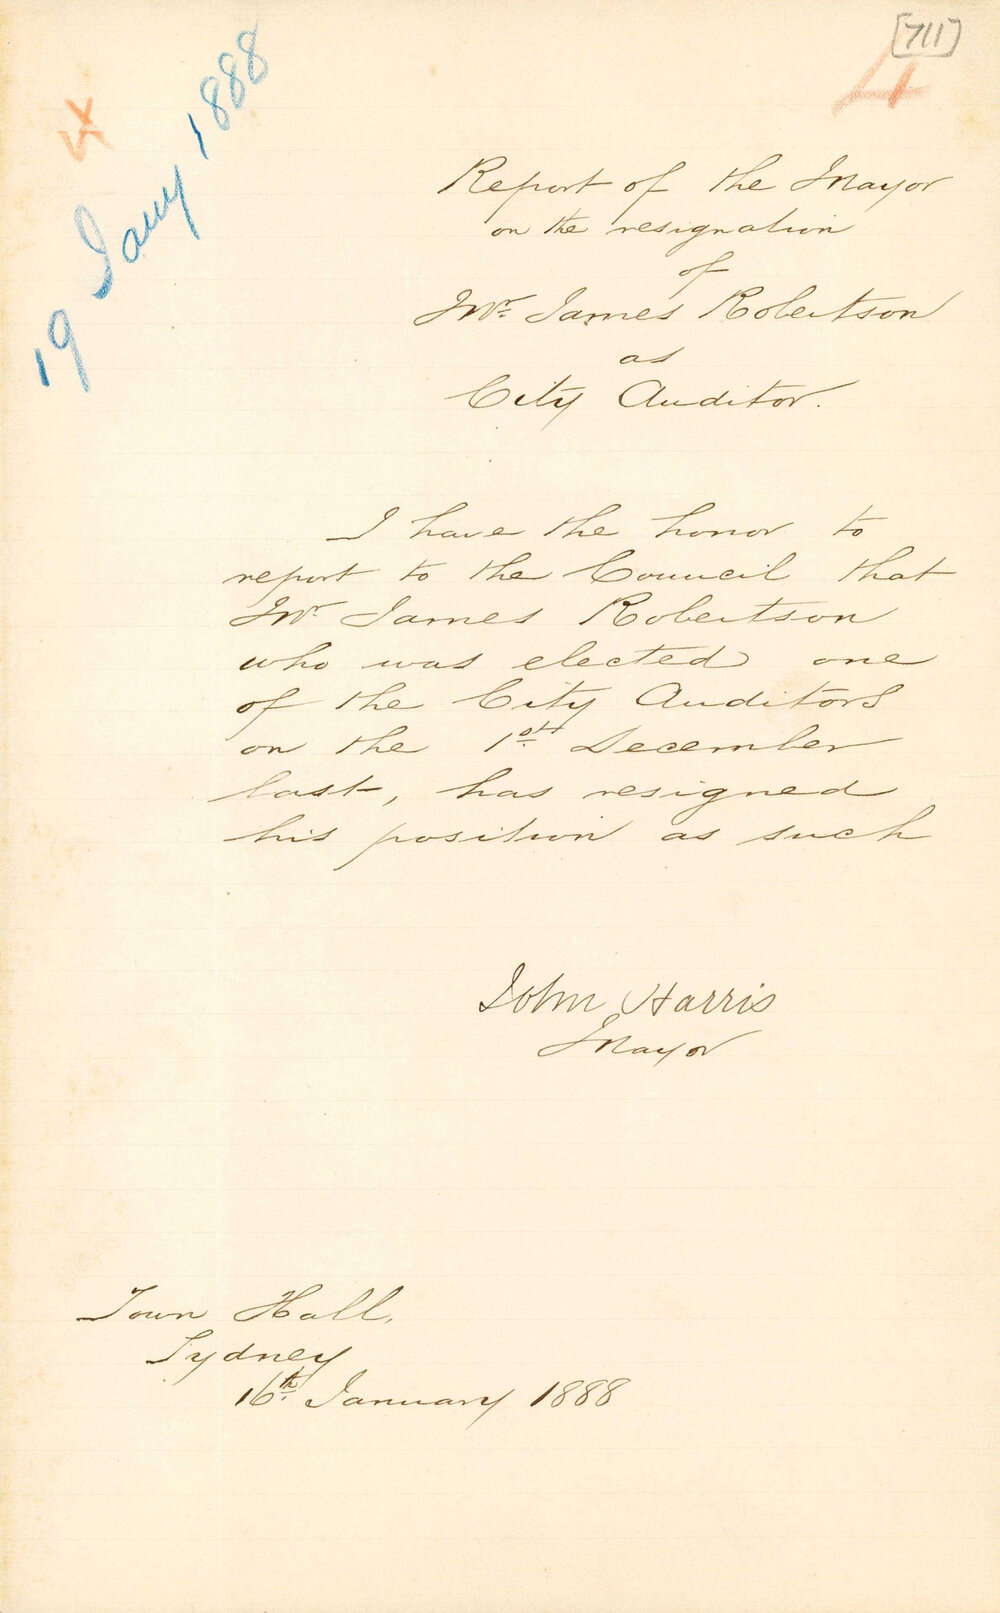 [711]
4
4
19 Jany 1888
Report of the Mayor
on the resignation
of
Mr. James Robertson
as
City Auditor.
I have the honor to
report to the Council that
Mr. James Robertson
who was elected one
of the City Auditors
on the 1st. December
last, has resigned
his position as such
John Harris
Mayor
Town Hall,
Sydney
16th. January 1888